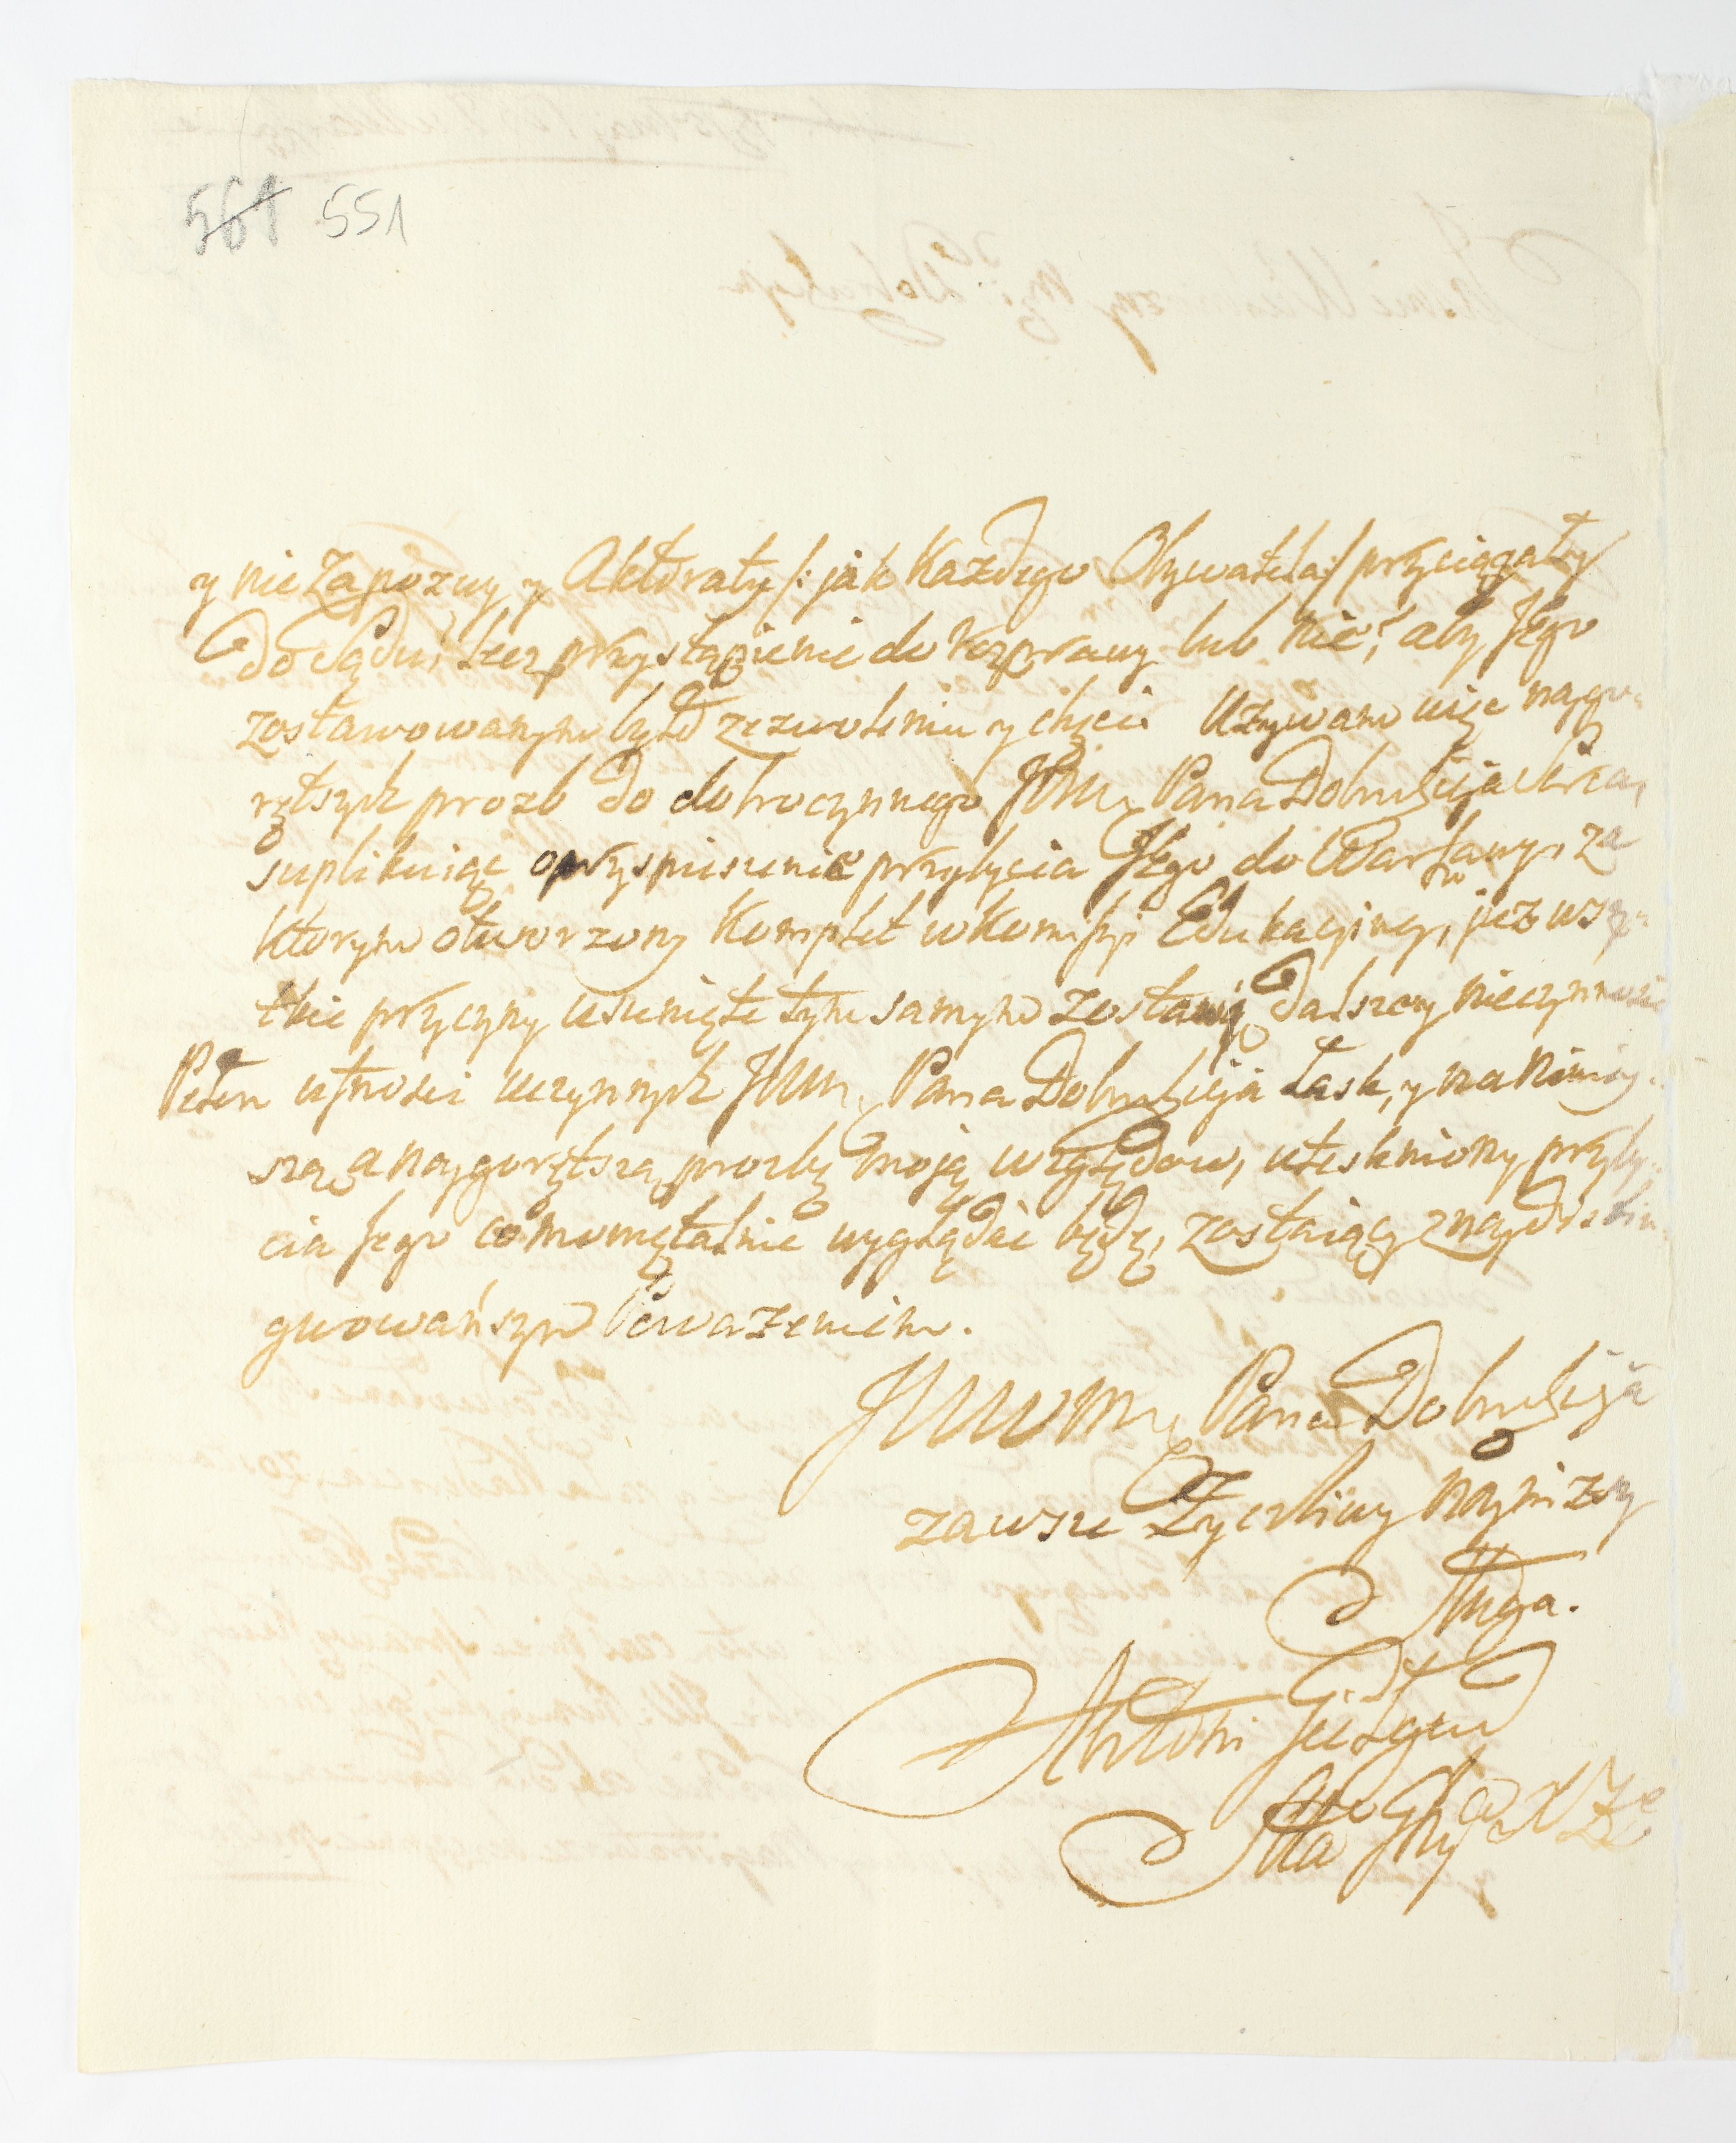 561 551
y nie Zapozwy y Aktoraty /: jak Każdego Obywatela :/ przyciągały
do Sądu, lecz przystąpienie do rozprawy lub nie, aby Jego
zostawowanym było zezwoleniu y chęci Używam więc naygo-
rętszych prozb do dobroczynnego JWW Pana Dobrodzieja serca,
suplikuiąc o przyspieszenie przybycia Jego do Warszawy, za
ktorym otworzony Komplet w Komissyi Edukacyiney, już wszy-
tkie przyczyny usunięte tym samym zostawi dalszey nieczynności
Pełen ufności uczynnych JWW Pana Dobrodzieja Łask, y na Niniey-
szą a naygorętszą prozbę moją względow, utęskniony przyby-
cia Jego co momętalnie wyglądać będę, zostaiąc z naydistin-
gwowańszym Poważeniem.
JWWM Pana Dobrodzieja
zawsze Życzliwy nayniższy
Sługa.
Antoni